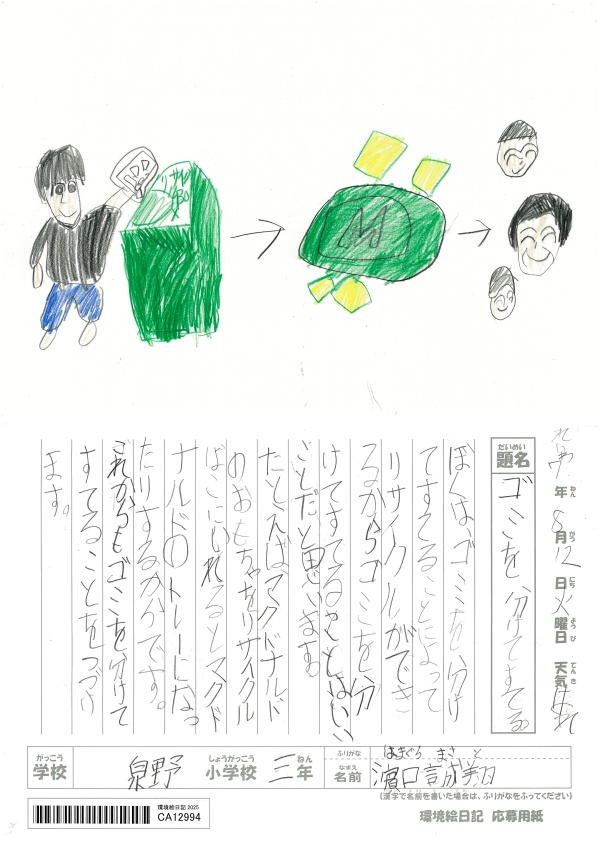 リサイクルBOX
M
れいわ7年8月12日火曜日 天気 晴れ
ねん
がつ
にち
ようび
てんき
だいめい
題名
ゴミを分けてすてる。
ぼくは、ゴミを分け
てすてることによって
リサイクルができ
るからゴミを分
けてすてることはいい
ことだと思います。
たとえばマクドナルド
のおもちゃをリサイクル
ばこにいれるとマクド
ナルドのトレーになっ
たりするからです。
これからもゴミを分けて
すてることをつづけ
ます。
がっこう
学校
泉野
しょうがっこう
小学校
三
ねん
年
ふりがな
はまぐち まさと
なまえ
名前
濵口誠翔
(漢字で名前を書いた場合は、ふりがなをふってください)
環境絵日記 2025
CA12994
環境絵日記 応募用紙